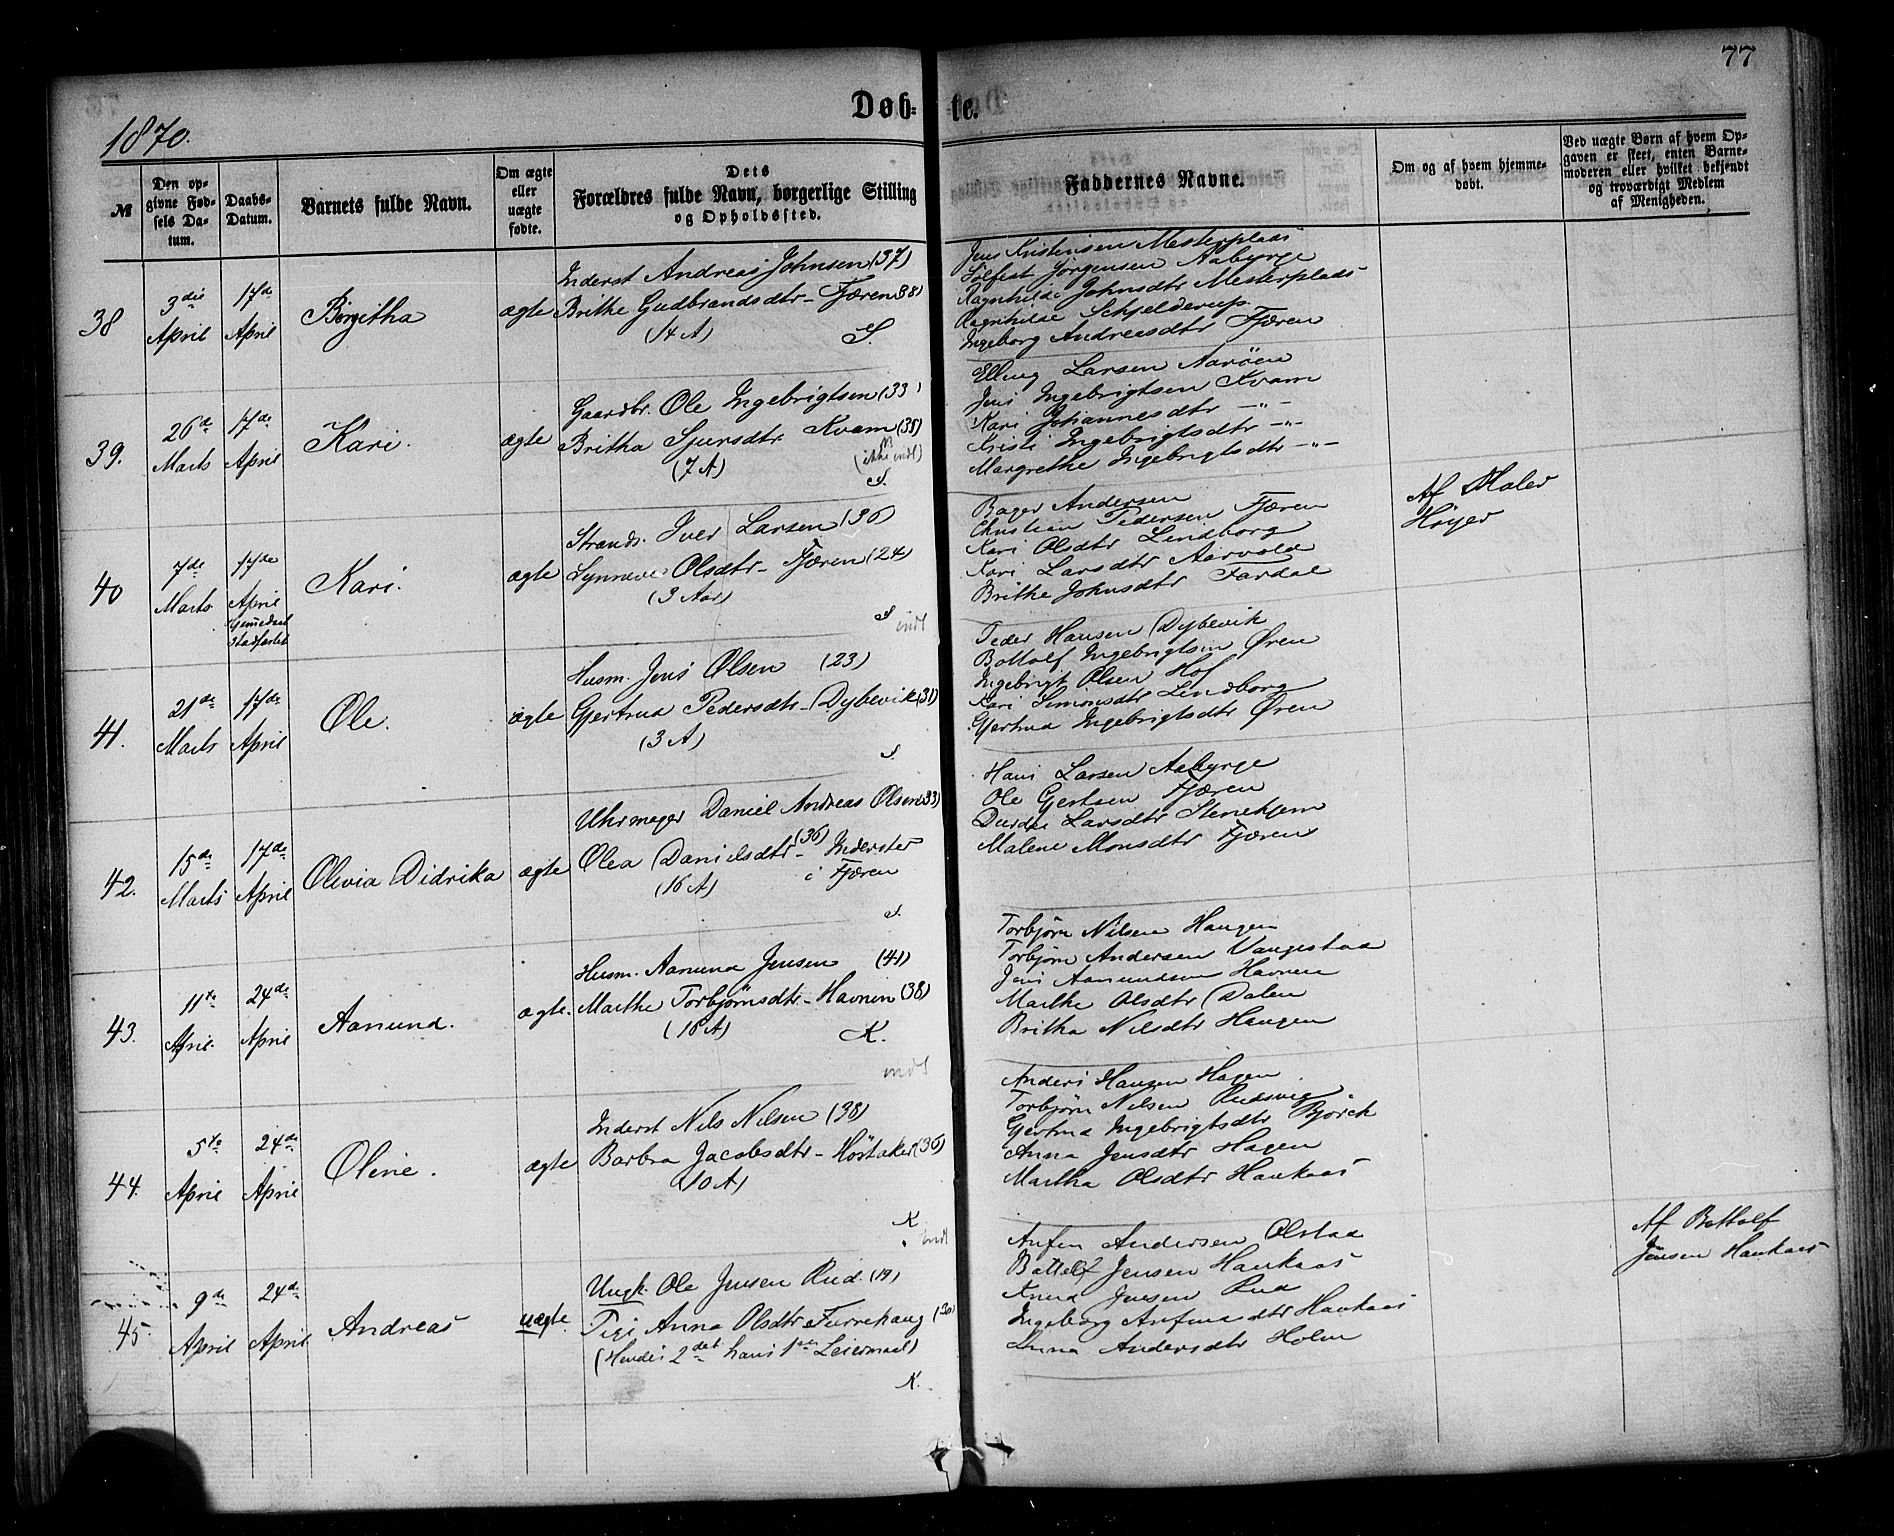 77
1870.
Døb-te.
№
Den op-
givne Fød-
sels Da-
tum.
Daabs-
Datum.
Barnets fulde Navn.
Om ægte
eller
uægte
fødte.
Dets
Forældres fulde Navn, borgerlige Stilling
og Opholdssted.
Faddernes Navne.
Om og af hvem hjemme-
døbt.
Ved uægte Børn af hvem Op-
gaven er skeet, enten Barne-
moderen eller hvilket bekjendt
og troværdigt Medlem
af Menigheden.
38
3die
April
17de
April
Børgitha
ægte
Inderst Andreas Johnsen (37)
Brithe Gudbrandsdtr - Fjæren (38)
(14 A)
S.
Jens Kristensen Mesterplads
Sølfest Jørgensen Aabyrge
Ragnhilde Johnsdtr Mesterplads
Ragnhilde Schjelderup
Ingeborg Andreasdtr Fjæren
39.
26de
Marts
17de
April
Kari.
ægte
Gaardbr. Ole Ingebrigtsen (33)
Britha Sjursdtr Kvam (38)
(7 A)
(ikke indl)
S.
Elling Larsen Aarøen
Jens Ingebrigtsen Kvam
Kari Johannesdtr -"-
Kristi Ingebrigtsdtr -"-
Margrethe Ingebrigtsdtr -"-
40
7de
Marts
17de
April
Stadfæstet
Kari.
ægte
Strands. Iver Larsen (36)
Synneve Olsdtr - Fjæren (24)
(3 Aar)
S
indl
Bager Andersen
Christian Pedersen Fjæren
Kari Olsdtr Lindborg
Kari Larsdtr Aarvold
Brithe Johnsdtr Fardal
Af Maler
Høyer
41.
21de
Marts
17de
April
Ole.
ægte
Husm. Jens Olsen (23)
Gjertrud Pedersdtr - Dybevik (31)
(3 A)
S.
Peder Hansen Dybevik
Bottolf Ingebrigtsen Øren
Ingebrigt Olsen Hof
Kari Simonsdtr Lindborg
Gjertrud Ingebrigtsdtr Øren
42.
15de
Marts
17de
April
Olivia Didrika
ægte
Uhrmager Daniel Andreas Olsen (33)
Olea Danielsdtr (36) - Inderster
(16 A) i Fjæren
S.
Hans Larsen Aabyrge
Ole Gertsen Fjæren
Durdei Larsdtr Stenehjem
Malene Monsdtr Fjæren
43.
11te
April.
24de
April
Aamund.
ægte.
Husm. Aamund Jensen (41)
Marthe Torbjørnsdtr - Havnen (38)
(16 A)
K.
indl
Torbjørn Nilsen Haugen
Torbjørn Andersen Vangestad
Jens Aamundsen Havnen
Marthe Olsdtr Dalen
Britha Nilsdtr Haugen
44.
5te
April
24de
April
Oline.
ægte
Inderst Nils Nilsen (38)
Barbra Jacobsdtr - Høstaker (36)
(10 A)
K
indl
Anders Hansen Hagen
Torbjørn Nilsen Rudsvig
Gjertrud Ingebrigtsdtr Bjørck
Anna Jensdtr Hagen
Martha Olsdtr Haukaas
45.
9de
April
24de
April
Andreas
uægte.
Ungk. Ole Jensen Rud. (19)
Pige Anna Olsdtr Furrehaug (30)
(Hendes 2det hans 1ste Leiermaal)
K.
Anfin Andersen Olstad
Bottelf Jensen Haukaas
Knud Jensen Rud
Ingeborg Anfinsdtr Haukaas
Anna Andersdtr Holm
Af Bottolf
Jensen Haukaas